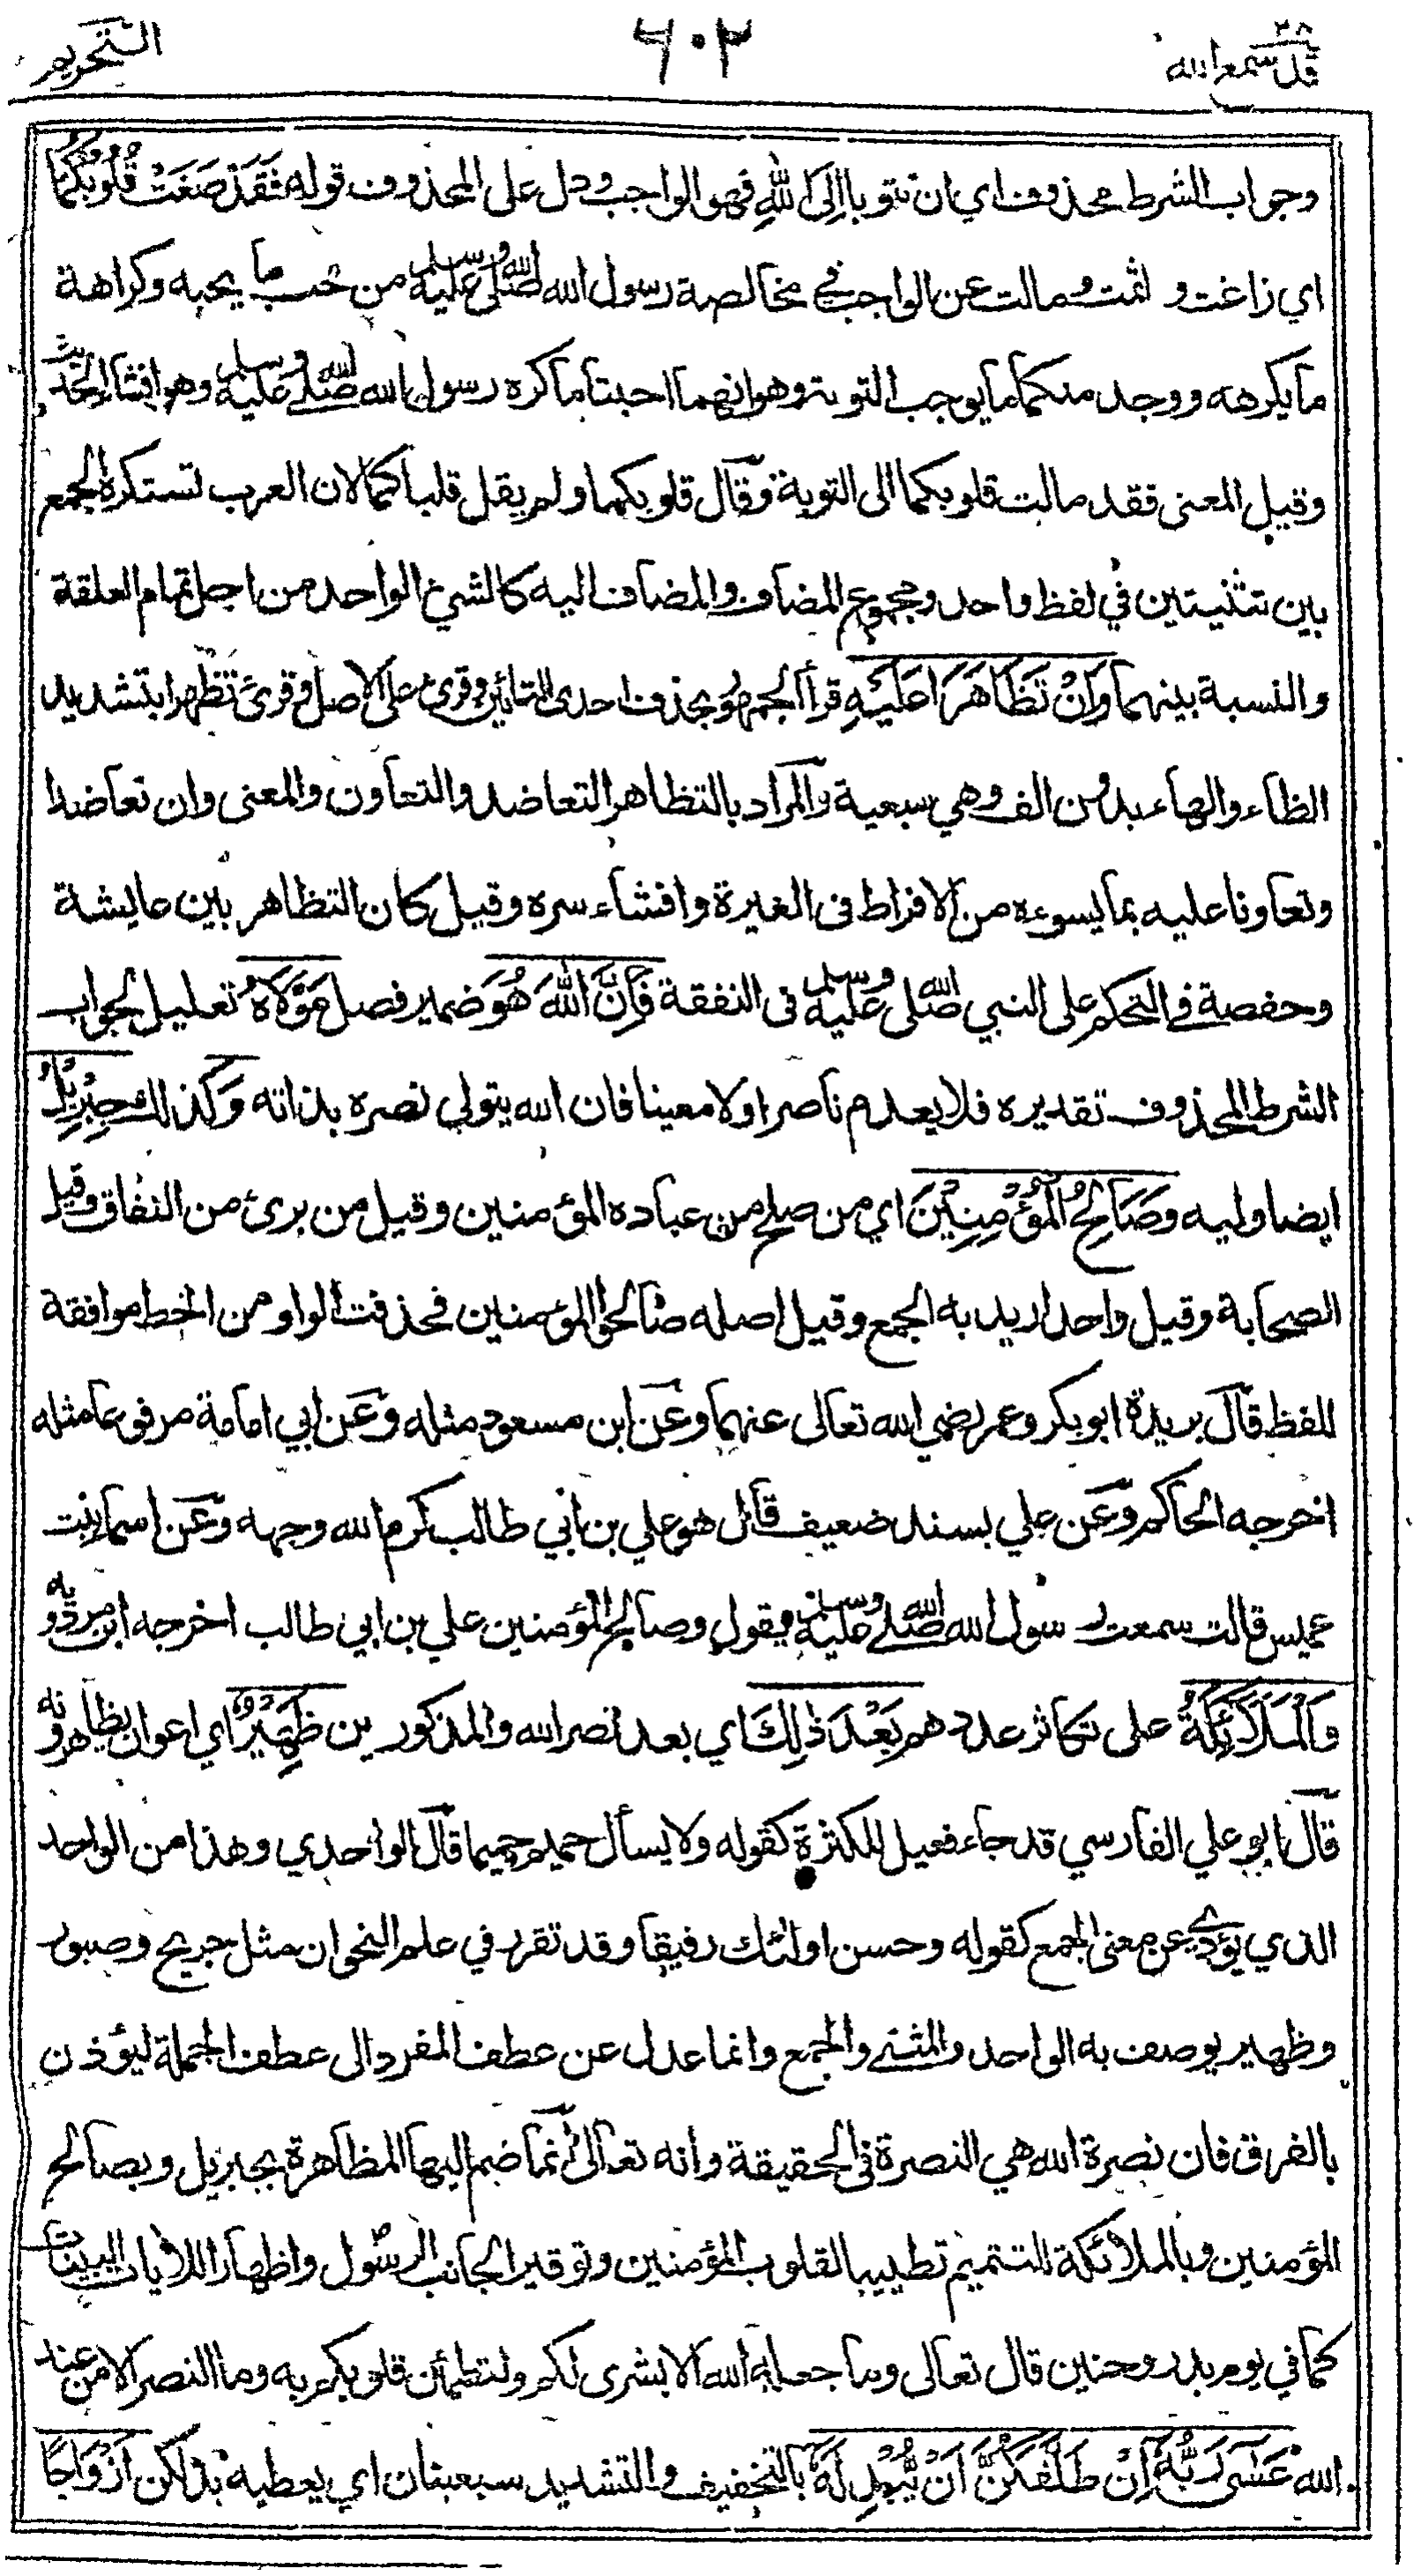 ٢٨
قد سمع الله
٦٠٢
التحريم
وجواب الشرط محذوف اي ان تتوبا الى اللهِ فهو الواجب ودل على المحذوف قوله فَقَدْ صَغَتْ قُلُوْبُكُمَا
اي زاغت واثمت ومالت عن الواجب في مخالصة رسول الله صلى الله عليه وسلم من حب ما يحبه وكراهة
ما يكرهه ووجد منكما ما يوجب التوبة وهو انهما احبتا ما كره رسول الله صلى الله عليه وسلم وهو افشاء الحديث
وقيل المعنى فقد مالت قلوبكما الى التوبة وقال قلوبكما ولم يقل قلباكما لان العرب تستكره الجمع
بين تثنيتين في لفظ واحد ومجموع المضاف والمضاف اليه كالشيئ الواحد من اجل تمام العلقة
والنسبة بينهما وَاِنْ تَظَاهَرَا عَلَيْهِ قرأ الجمهور بحذف احدى التائين وقرئ على الاصل وقرئ تظهرا بتشديد
الظاء والهاء بدون الف وهي سبعية والمراد بالتظاهر التعاضد والتعاون والمعنى وان تعاضدا
وتعاونا عليه بما يسوءه من الافراط في الغيرة وافشاء سره وقيل كان التظاهر بين عايشة
وحفصة في التحكم على النبي صلى الله عليه وسلم في النفقة فَاِنَّ اللهَ هُوَ ضمير فصل مَوْلَاهُ تعليل لجواب
الشرط المحذوف تقديره فلا يعدم ناصرا ولا معينا فان الله يتولى نصره بذاته وَ كذلك جِبْرِيْلُ
ايضا وليه وَصَالِحُ الْمُؤْمِنِيْنَ اي من صلح من عباده المؤمنين وقيل من برئ من النفاق وقيل
الصحابة وقيل واحد اريد به الجمع وقيل اصله صالحوا المؤمنين فحذفت الواو من الخط موافقة
للفظ قال بريدة ابو بكر وعمر رضي الله تعالى عنهما وعن ابن مسعود مثله وعن ابي امامة مرفوعا مثله
اخرجه الحاكم وعن علي بسند ضعيف قال هو علي بن ابي طالب كرم الله وجهه وعن اسما بنت
عميس قالت سمعت رسول الله صلى الله عليه وسلم يقول وصالح المؤمنين علي بن ابي طالب اخرجه ابن مردويه
وَالْمَلَائِكَةُ على تكاثر عددهم بَعْدَ ذٰلِكَ اي بعد نصر الله والمذكورين ظَهِيْرٌ اي اعوان يظاهرونه
قال ابو علي الفارسي قد جاء فعيل للكثرة كقوله ولا يسأل حميم حميما قال الواحدي وهذا من الواحد
الذي يؤدي عن معنى الجمع كقوله وحسن اولئك رفيقا وقد تقرر في علم النحو ان مثل جريح وصبور
وظهير يوصف به الواحد والمثنى والجمع وانما عدل عن عطف المفرد الى عطف الجملة ليؤذن
بالفرق فان نصرة الله هي النصرة في الحقيقة وانه تعالى انما ضم اليها المظاهرة بجبريل وبصالح
المؤمنين وبالملائكة للتتميم تطييبا لقلوب المؤمنين وتوقيرا لجانب الرسول واظهارا للايات البينات
كما في يوم بدر وحنين قال تعالى وما جعله الله الا بشرى لكم ولتطمئن قلوبكم به وما النصر الا من عند
الله عَسٰى رَبُّهٗ اِنْ طَلَّقَكُنَّ اَنْ يُّبْدِلَهٗ بالتخفيف والتشديد سبعيتان اي يعطيه بدلكن اَزْوَاجًا